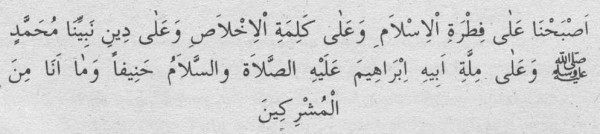 اَصْبَحْنَا عَلٰى فِطْرَةِ اْلاِسْلاَمِ وَعَلٰى كَلِمَةِ اْلاِخْلاَصِ وَعَلٰى دِينِ نَبِيِّنَا مُحَمَّدٍ
ﷺ وَعَلٰى مِلَّةِ اَبِيهِ اِبْرَاهِيمَ عَلَيْهِ الصَّلاَة والسَّلاَمُ حَنِيفاً وَمٰا اَنَا مِنَ
الْمُشْرِكِينَ